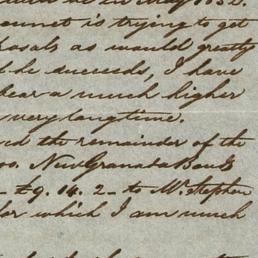 in May 1832.
is trying to get
as would greatly
he succeeds, I have
bear a much higher
very long time.
the remainder of the
New Granada Bonds
£9. 14. 2 - to Mr. Stephen
for which I am much